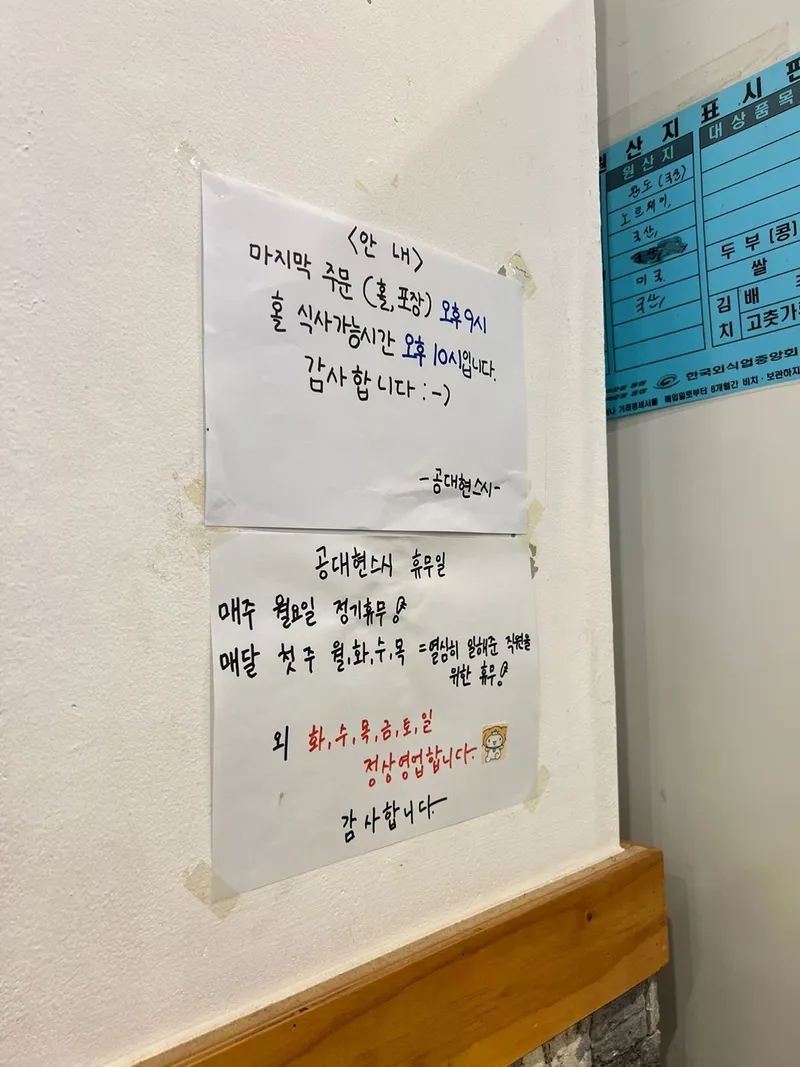 <안 내>
마지막 주문 (홀, 포장) 오후 9시
홀 식사가능시간 오후 10시입니다.
감사합니다 :-)
-공대현스시-
공대현스시 휴무일
매주 월요일 정기휴무
매달 첫 주 월,화,수,목 =열심히 일해준 직원을
위한 휴무
외 화,수,목,금,토,일
정상영업합니다.
감사합니다.
원산지표시판
원산지
대상품목
완도 (국산)
노르웨이,
국산,
미국
국산,
두부(콩)
쌀
김 배
치 고춧가
한국외식업중앙회
거래명세서를 매입일로부터 6개월간 비치·보관하